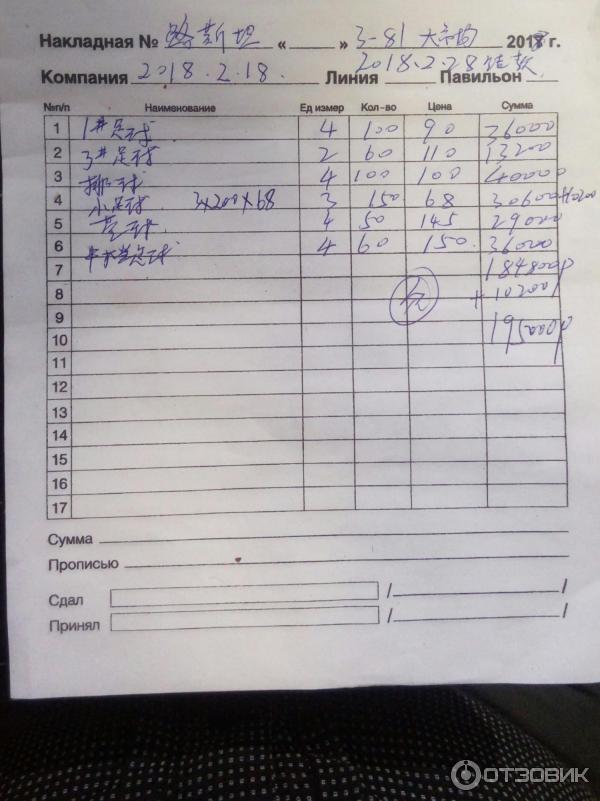 Накладная № 路斯坦 « » 3-81 2018 г.
Компания 2018.2.18. Линия 2018.2.28 Павильон
№п/п Наименование Ед измер Кол-во Цена Сумма
1 1#足球 4 100 90 36000
2 3#足球 2 60 110 13200
3 排球 4 100 100 40000
4 小足球 3×200×68 3 150 68 30600+10200
5 球 4 50 145 29000
6 球 4 60 150 36000
7 184800р
8 +10200
9 195000р
10
11
12
13
14
15
16
17
Сумма
Прописью
Сдал / /
Принял / /
ОТЗОВИК